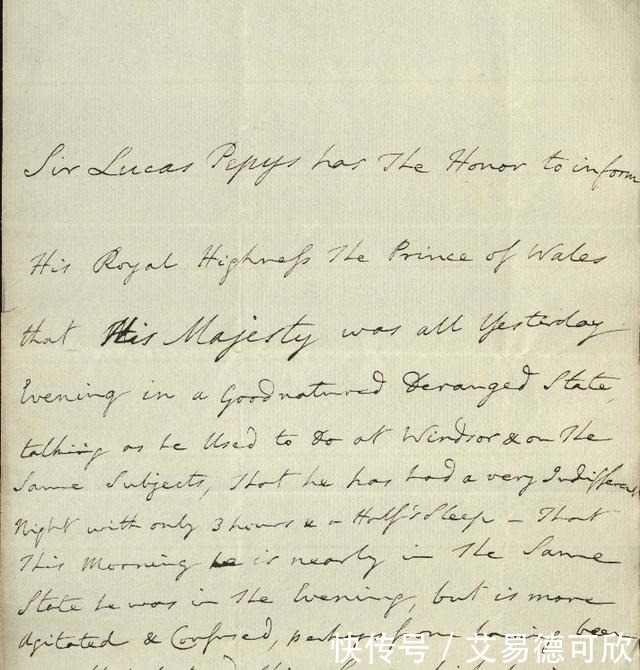 Sir Lucas Pepys has The Honor to inform
His Royal Highneſs The Prince of Wales
that His Majesty was all Yesterday
Evening in a Goodnatured Deranged State,
talking as he Used to Do at Windsor & on The
Same Subjects, That he has had a very Indifferent
Night with only 3 hours & a Half's Sleep – That
This Morning he is nearly in The Same
State he was in The Evening, but is more
Agitated & Confused, perhaps from having been
快传号 / 艾易德可欣